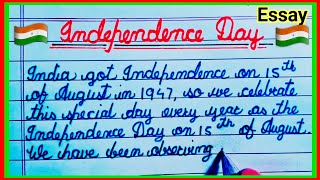 Essay
Independence Day
India got Independence on 15th
of August in 1947, so we celebrate
this special day every year as the
Independence Day on 15th of August.
We have been observing